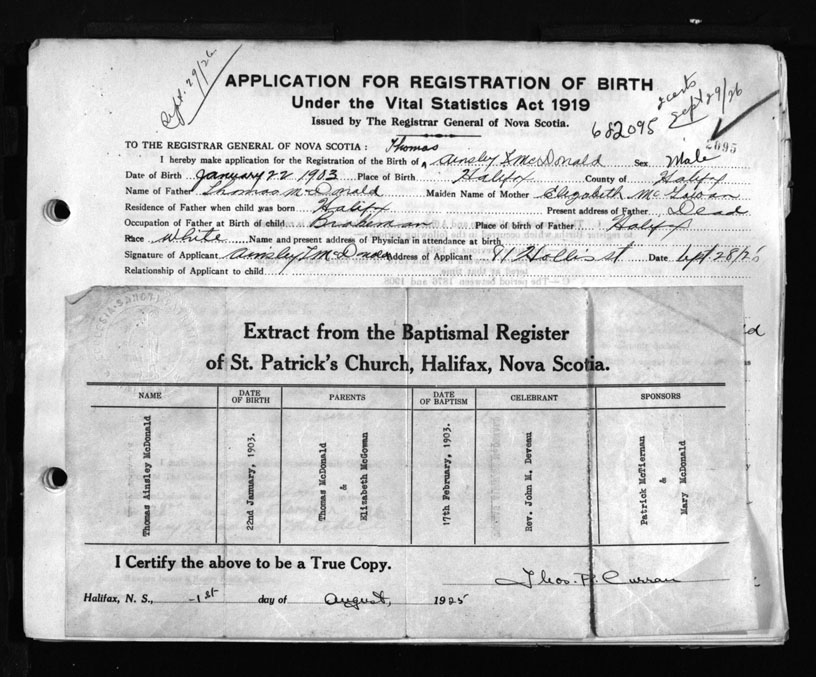 Sept. 29/26
APPLICATION FOR REGISTRATION OF BIRTH
Under the Vital Statistics Act 1919
Issued by The Registrar General of Nova Scotia.
682095
2 certs
Sept 29/26
2095
TO THE REGISTRAR GENERAL OF NOVA SCOTIA: Thomas
I hereby make application for the Registration of the Birth of Ainsley McDonald Sex Male
Date of Birth January 22 1903 Place of Birth Halifax County of Halifax
Name of Father Thomas McDonald Maiden Name of Mother Elizabeth McGowan
Residence of Father when child was born Halifax Present address of Father Dead
Occupation of Father at Birth of child Brakeman Place of birth of Father Halifax
Race White Name and present address of Physician in attendance at birth
Signature of Applicant Ainsley T McDonald Address of Applicant 91 Hollis st Date Sept. 28/26
Relationship of Applicant to child
Extract from the Baptismal Register
of St. Patrick's Church, Halifax, Nova Scotia.
NAME DATE OF BIRTH PARENTS DATE OF BAPTISM CELEBRANT SPONSORS
Thomas Ainsley McDonald
22nd January, 1903.
Thomas McDonald
&
Elizabeth McGowan
17th February, 1903.
Rev. John M. Deveau
Patrick McTiernan
&
Mary McDonald
I Certify the above to be a True Copy.
Thos. P. Curran
Halifax, N. S., 1st day of August, 1925